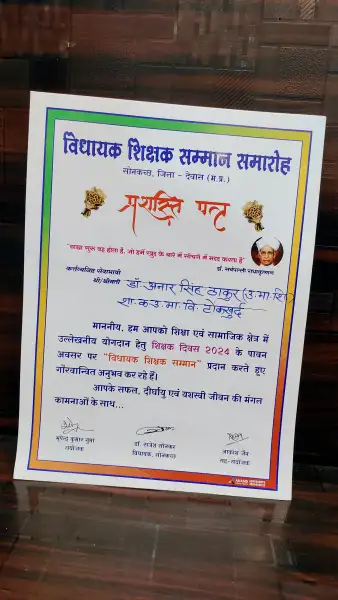 विधायक शिक्षक सम्मान समारोह
सोनकच्छ, जिला - देवास (म.प्र.)
प्रशस्ति पत्र
"सच्चा गुरू वह होता है, जो हमें खुद के बारे में सोचने में मदद करता है"
डॉ. सर्वपल्ली राधाकृष्णन
श्री/श्रीमती डॉ. अनार सिंह ठाकुर (उ.मा.शि)
शा.क.उ.मा.वि. टोंकखुर्द
माननीय, हम आपको शिक्षा एवं सामाजिक क्षेत्र में
उल्लेखनीय योगदान हेतु शिक्षक दिवस 2024 के पावन
अवसर पर "विधायक शिक्षक सम्मान" प्रदान करते हुए
गौरवान्वित अनुभव कर रहे हैं।
आपके सफल, दीर्घायु एवं यशस्वी जीवन की मंगल
कामनाओं के साथ...
संयोजक
डॉ. राजेश सोनकर
विधायक, सोनकच्छ
सह-संयोजक